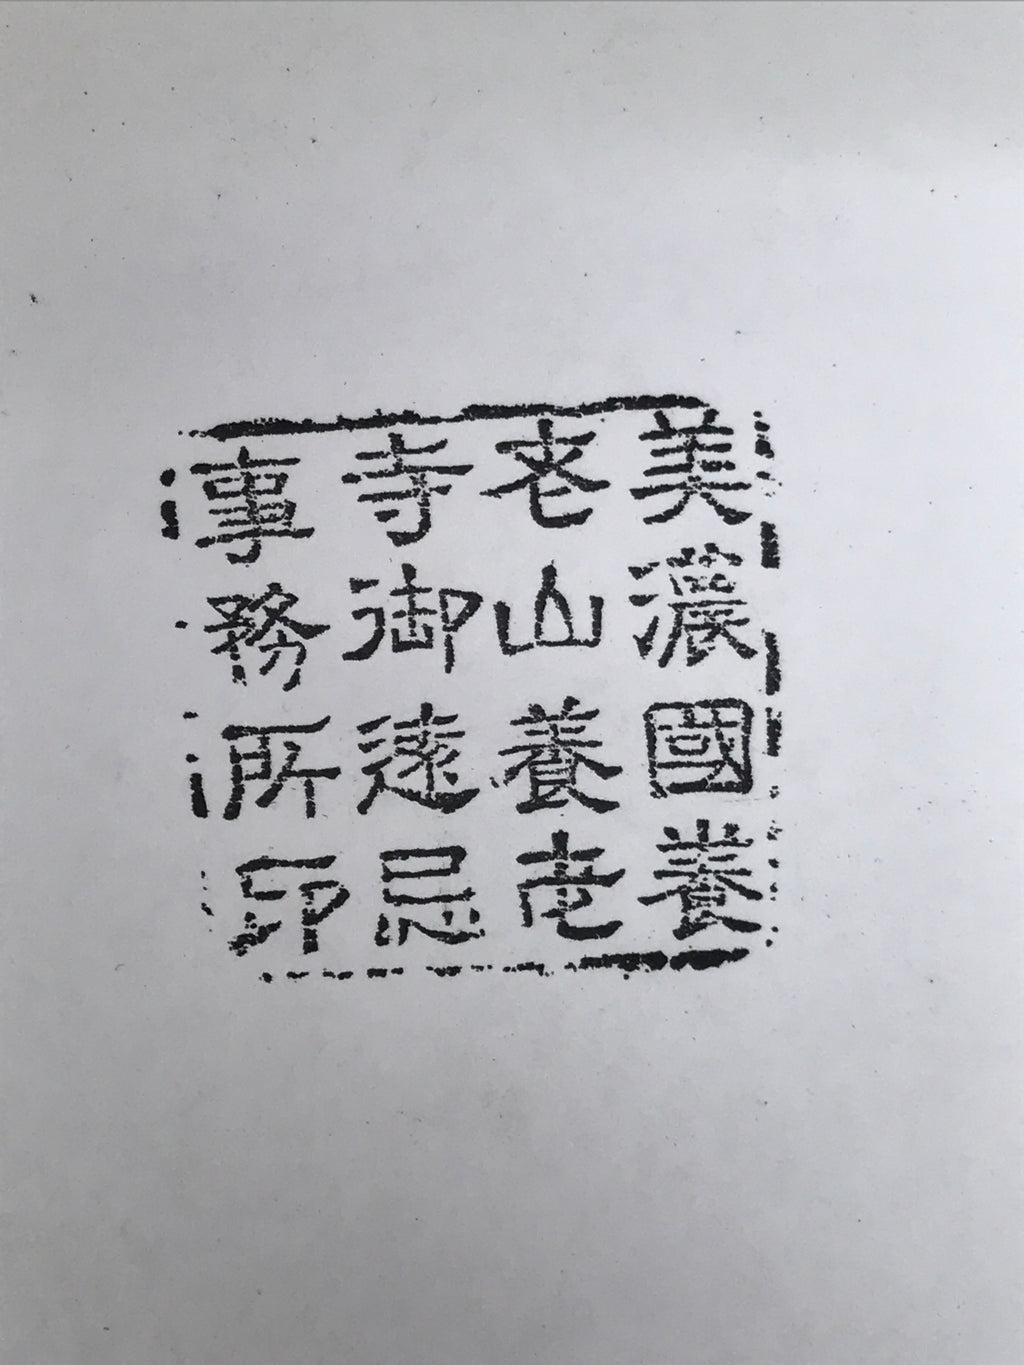 美濃國養
老山養老
寺御遠忌
事務所印